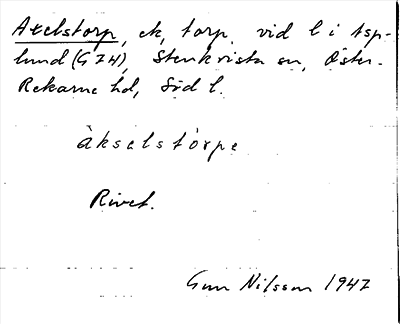 Axelstorp, ck, torp. vid l i Asp-
lund (G I H), Stenkvista sn, Öster-
Rekarne hd, Söd l.
àkselstòrpe
Rivet.
Gun Nilsson 1947